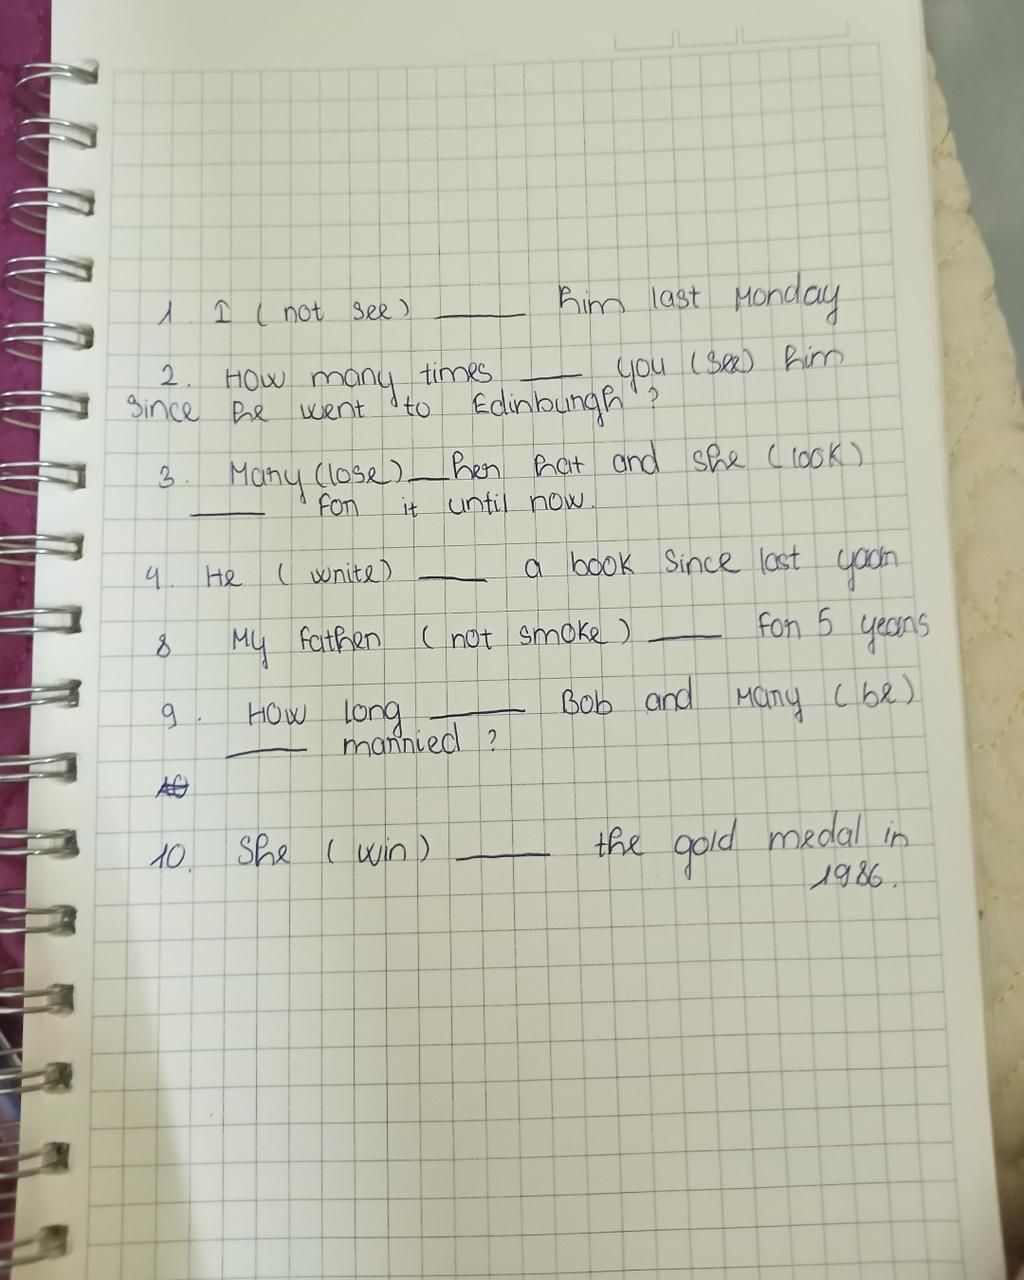 1. I ( not see ) _____ him last Monday
2. How many times ____ you (see) him
since he went to Edinburgh ?
3. Mary (lose) ___ her hat and she (look)
_____ for it until now.
4. He ( write) ____ a book since last year
8 My father ( not smoke ) _____ for 5 years
9. How long ______ Bob and Mary ( be )
_____ married ?
10. She ( win ) ______ the gold medal in
1986.